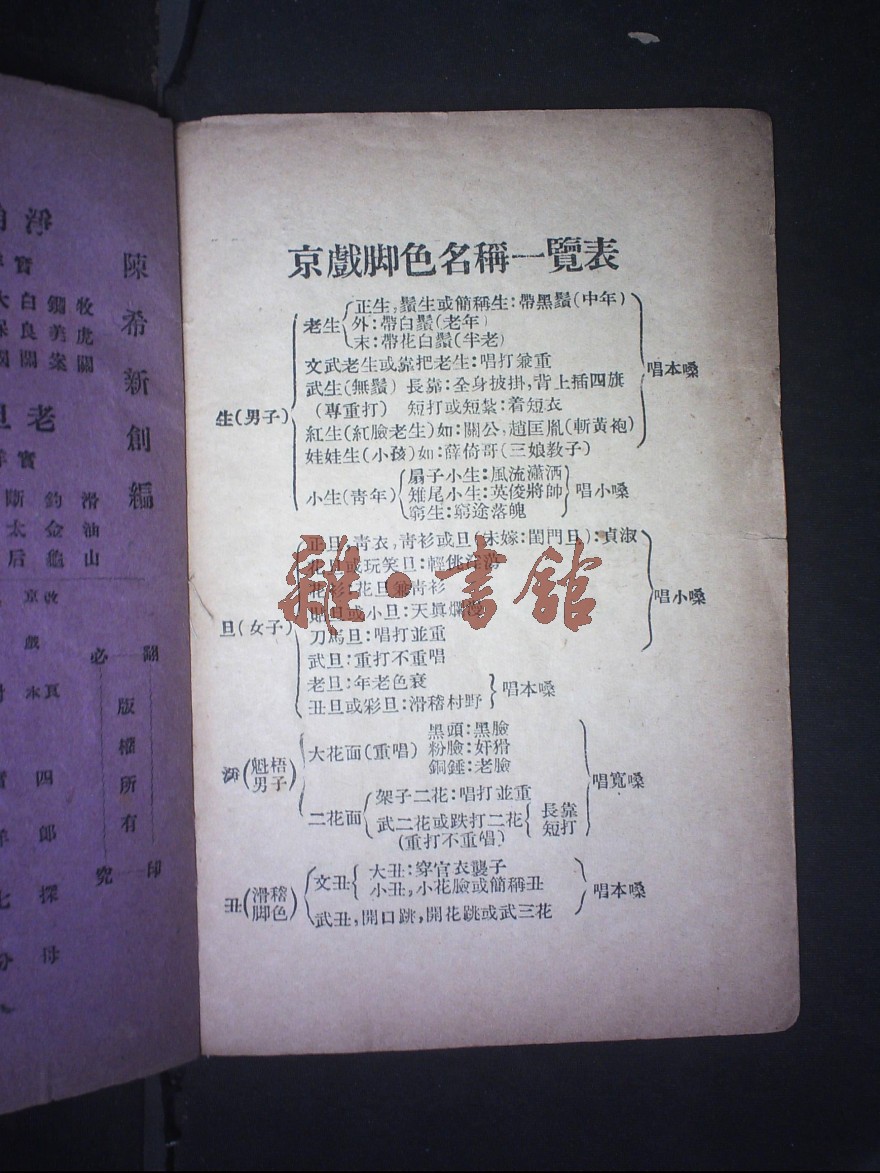 京戲脚色名稱一覽表
生(男子)
老生
正生,鬚生或簡稱生:帶黑鬚(中年)
外:帶白鬚(老年)
末:帶花白鬚(半老)
文武老生或靠把老生:唱打兼重
武生(無鬚) 長靠:全身披掛,背上插四旗
(專重打) 短打或短紮:着短衣
紅生(紅臉老生)如:關公,趙匡胤(斬黃袍)
娃娃生(小孩)如:薛倚哥(三娘教子)
唱本嗓
小生(靑年)
扇子小生:風流瀟洒
雉尾小生:英俊將帥
窮生:窮途落魄
唱小嗓
旦(女子)
正旦,靑衣,靑衫或旦(未嫁:閨門旦):貞淑
花旦或玩笑旦:輕佻
花衫:花旦兼靑衫
貼旦或小旦:天眞爛漫
刀馬旦:唱打並重
武旦:重打不重唱
唱小嗓
老旦:年老色衰
丑旦或彩旦:滑稽村野
唱本嗓
淨(魁梧男子)
大花面(重唱)
黑頭:黑臉
粉臉:奸猾
銅錘:老臉
二花面
架子二花:唱打並重
武二花或跌打二花
長靠
短打
(重打不重唱)
唱寬嗓
丑(滑稽脚色)
文丑
大丑:穿官衣襲子
小丑,小花臉或簡稱丑
武丑,開口跳,開花跳或武三花
唱本嗓
雜·書館
陳希新創編
老旦
牧虎關
鍘美案
白良關
滑油山
釣金龜
斷太后
翻印必究
版權所有
四郎探母